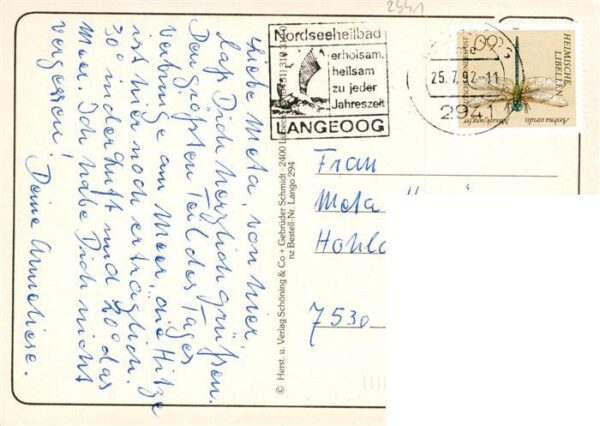 2941
Nordseeheilbad
erholsam,
heilsam
zu jeder
Jahreszeit
LANGEOOG
25.7.92-11
2941
60
HEIMISCHE
LIBELLEN
Aeshna viridis
Liebe Meta, von hier,
laß Dich herzlich grüßen.
Den größten Teil des Tages
verbringe am Meer, die Hitze
ist hier noch erträglich.
30° in der Luft und 20° das
Meer. Ich habe Dich nicht
vergessen!
Deine Anneliese.
© Herst. u. Verlag Schöning & Co + Gebrüder Schmidt · 2400
nz Bestell-Nr. Lango 294
Frau
Meta
7530